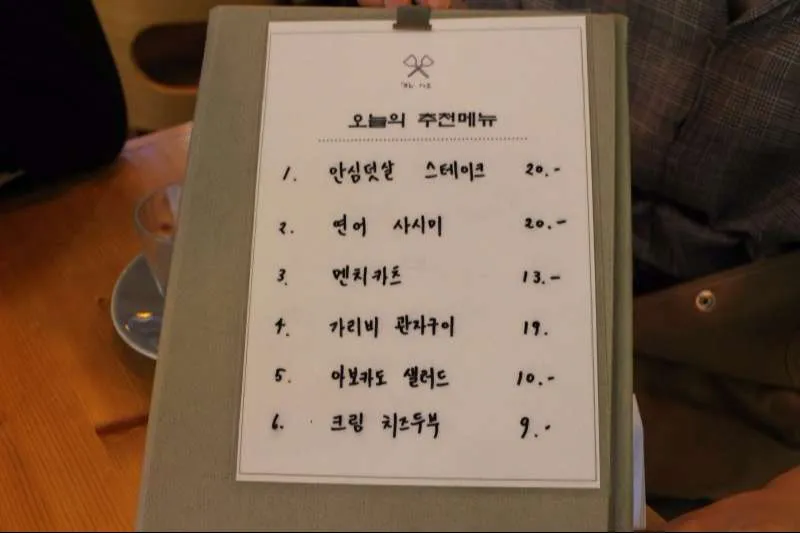 오늘의 추천메뉴
1. 안심덧살 스테이크 20.-
2. 연어 사시미 20.-
3. 멘치카츠 13.-
4. 가리비 관자구이 19.
5. 아보카도 샐러드 10.-
6. 크림 치즈두부 9.-